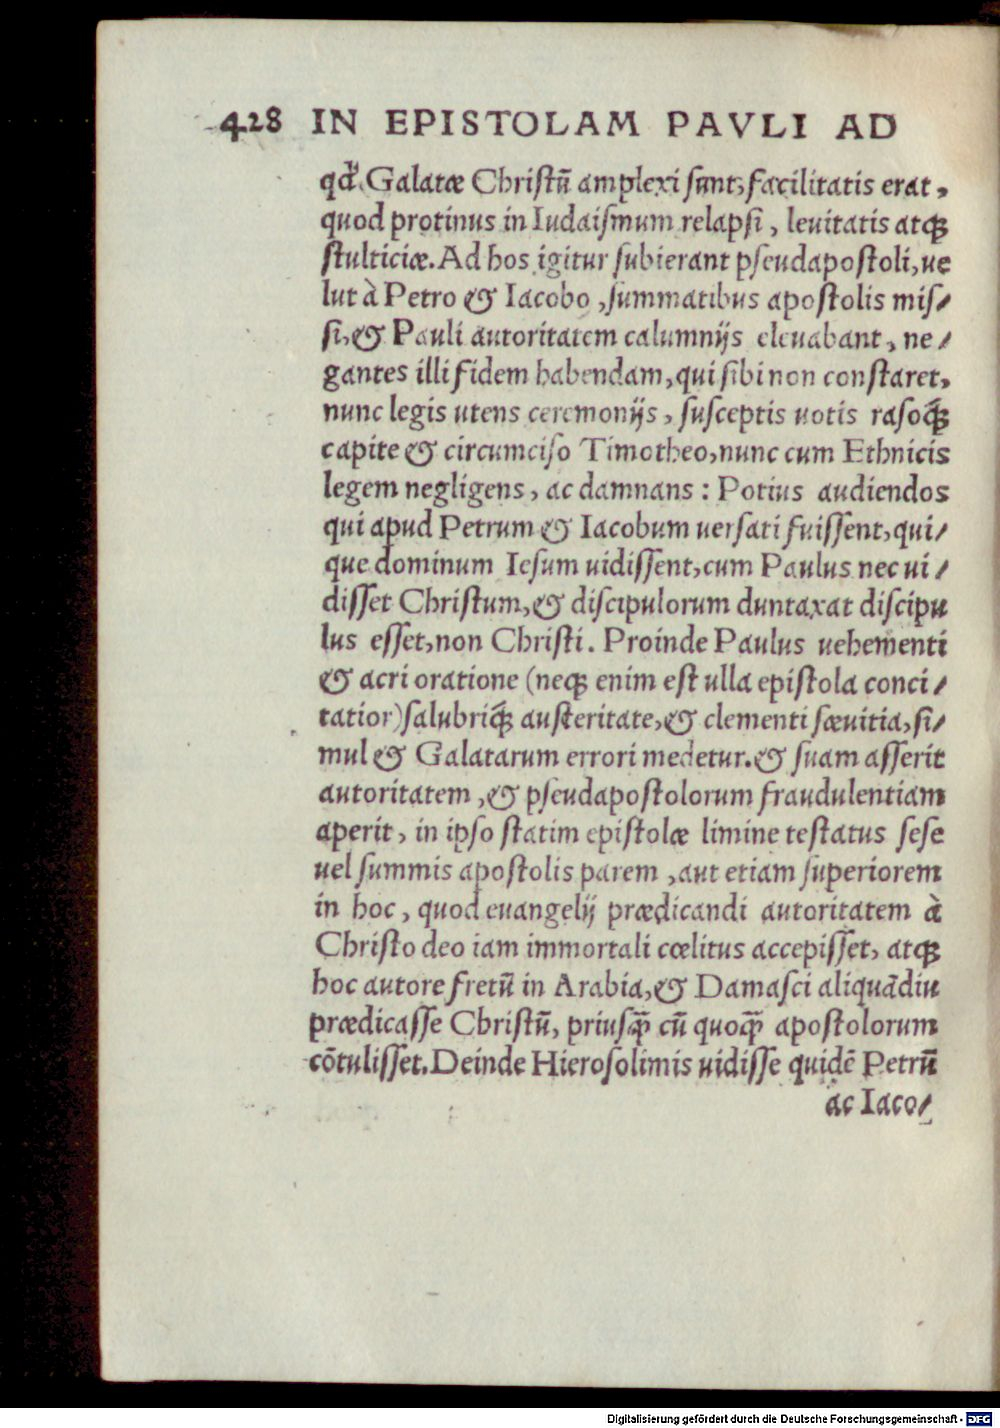 428 IN EPISTOLAM PAVLI AD
qđ Galatæ Christū amplexi sunt, facilitatis erat,
quod protinus in Iudaismum relapsi, leuitatis atq;
stulticiæ. Ad hos igitur subierant pseudapostoli, ue
lut à Petro & Iacobo, summatibus apostolis mis/
si, & Pauli autoritatem calumnijs eleuabant, ne/
gantes illi fidem habendam, qui sibi non constaret,
nunc legis utens ceremonijs, susceptis uotis rasoq́;
capite & circumciso Timotheo, nunc cum Ethnicis
legem negligens, ac damnans: Potius audiendos
qui apud Petrum & Iacobum uersati fuissent, qui/
que dominum Iesum uidissent, cum Paulus nec ui/
disset Christum, & discipulorum duntaxat discipu
lus esset, non Christi. Proinde Paulus uehementi
& acri oratione (neq; enim est ulla epistola conci/
tatior) salubriq́; austeritate, & clementi sæuitia, si/
mul & Galatarum errori medetur. & suam asserit
autoritatem, & pseudapostolorum fraudulentiam
aperit, in ipso statim epistolæ limine testatus sese
uel summis apostolis parem, aut etiam superiorem
in hoc, quod euangelij prædicandi autoritatem à
Christo deo iam immortali cœlitus accepisset, atq;
hoc autore fretū in Arabia, & Damasci aliquādiu
prædicasse Christū, priusq̄ cū quoq̄ apostolorum
cōtulisset. Deinde Hierosolimis uidisse quidē Petrū
ac Iaco/
Digitalisierung gefördert durch die Deutsche Forschungsgemeinschaft - DFG